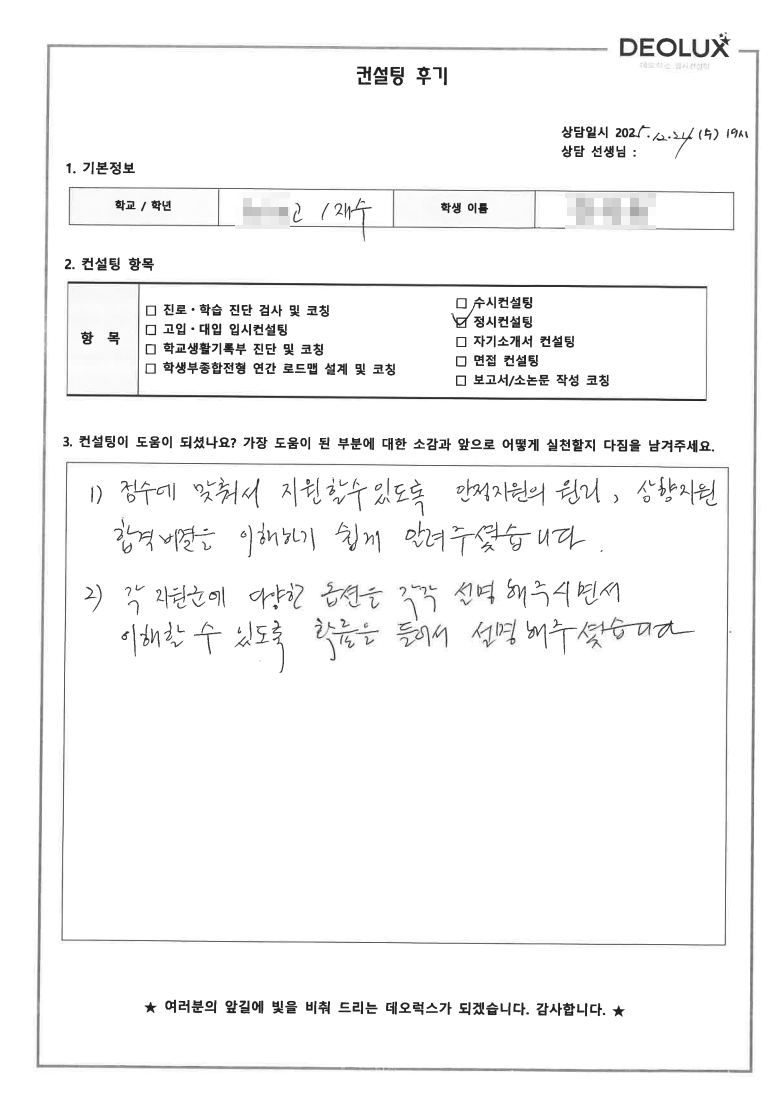 DEOLUX
데오럭스 입시컨설팅
컨설팅 후기
상담일시 2025.12.24 (수) 19시
상담 선생님 :
1. 기본정보
학교 / 학년 고 / 재수 학생 이름
2. 컨설팅 항목
항 목
□ 진로·학습 진단 검사 및 코칭
□ 고입·대입 입시컨설팅
□ 학교생활기록부 진단 및 코칭
□ 학생부종합전형 연간 로드맵 설계 및 코칭
□ 수시컨설팅
☑ 정시컨설팅
□ 자기소개서 컨설팅
□ 면접 컨설팅
□ 보고서/소논문 작성 코칭
3. 컨설팅이 도움이 되셨나요? 가장 도움이 된 부분에 대한 소감과 앞으로 어떻게 실천할지 다짐을 남겨주세요.
1) 점수에 맞춰서 지원할수있도록 안정지원의 원리, 상향지원
합격비결을 이해하기 쉽게 알려주셨습니다.
2) 각 지원군에 다양한 옵션을 각각 설명해주시면서
이해할 수 있도록 확률을 들어서 설명해주셨습니다
★ 여러분의 앞길에 빛을 비춰 드리는 데오럭스가 되겠습니다. 감사합니다. ★